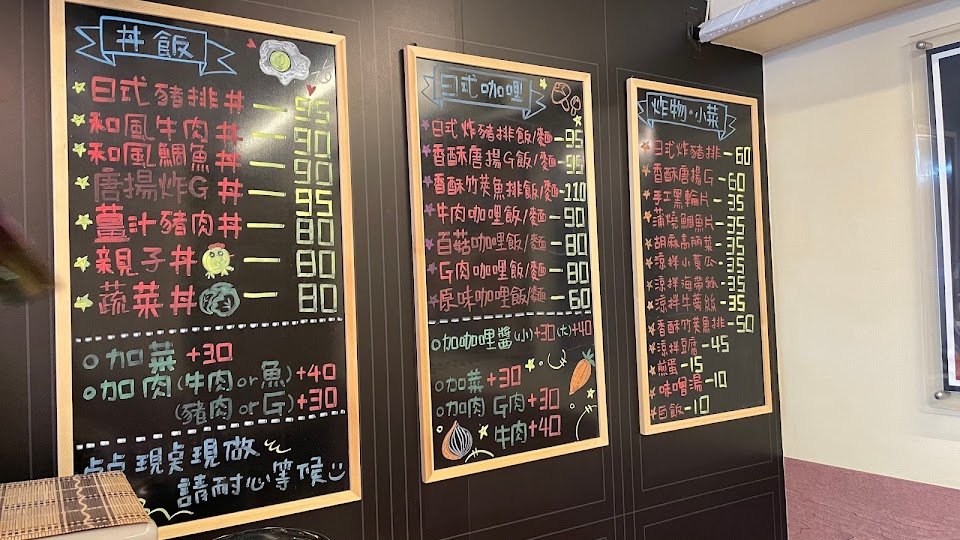 丼飯
日式豬排丼 — 95
和風牛肉丼 — 90
和風鯛魚丼 — 90
唐揚炸G丼 — 95
薑汁豬肉丼 — 80
親子丼 — 80
蔬菜丼 — 80
加菜+30
加肉(牛肉or魚)+40
(豬肉orG)+30
點點現桌現做
請耐心等候
日式咖哩
日式炸豬排飯/麵-95
香酥唐揚G飯/麵-95
香酥竹莢魚排飯/麵-110
牛肉咖哩飯/麵-90
百菇咖哩飯/麵-80
G肉咖哩飯/麵-80
原味咖哩飯/麵-60
加咖哩醬(小)+30(大)+40
加菜+30
加肉 G肉+30
牛肉+40
炸物·小菜
日式炸豬排-60
香酥唐揚G-60
手工黑輪片-35
蒲燒鯛魚片-35
胡麻高麗菜-35
涼拌小黃瓜-35
涼拌海帶絲-35
涼拌牛蒡絲-35
香酥竹莢魚排-50
涼拌豆腐-45
煎蛋-15
味噌湯-10
白飯-10